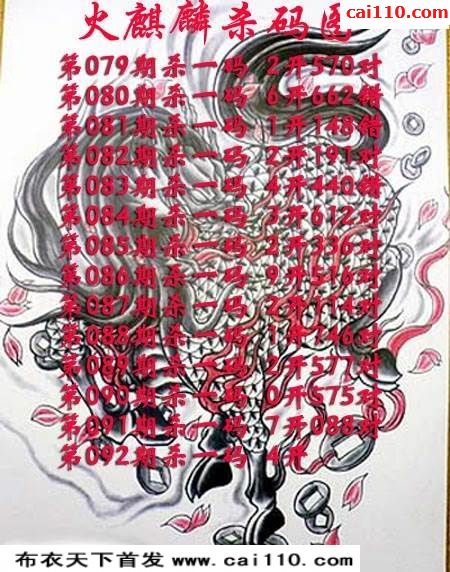 cai110.com
火麒麟杀码图
第079期杀一码 2开570对
第080期杀一码 6开662错
第081期杀一码 1开148错
第082期杀一码 2开191对
第083期杀一码 4开440错
第084期杀一码 3开612对
第085期杀一码 2开336对
第086期杀一码 9开516对
第087期杀一码 2开114对
第088期杀一码 1开746对
第089期杀一码 2开577对
第090期杀一码 0开575对
第091期杀一码 7开088对
第092期杀一码 4开
布衣天下首发 www.cai110.com